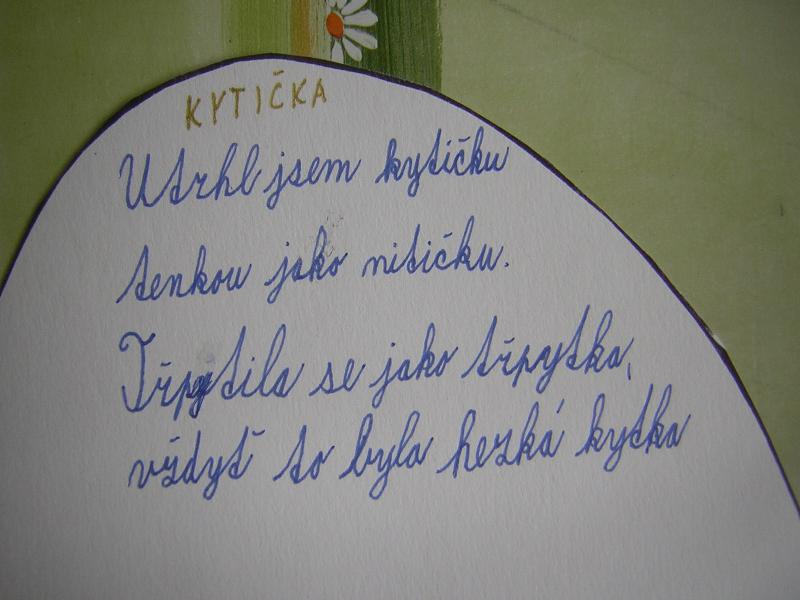 KYTIČKA
Utrhl jsem kytičku
tenkou jako nitičku.
Třpytila se jako třpytka,
vždyť to byla hezká kytka